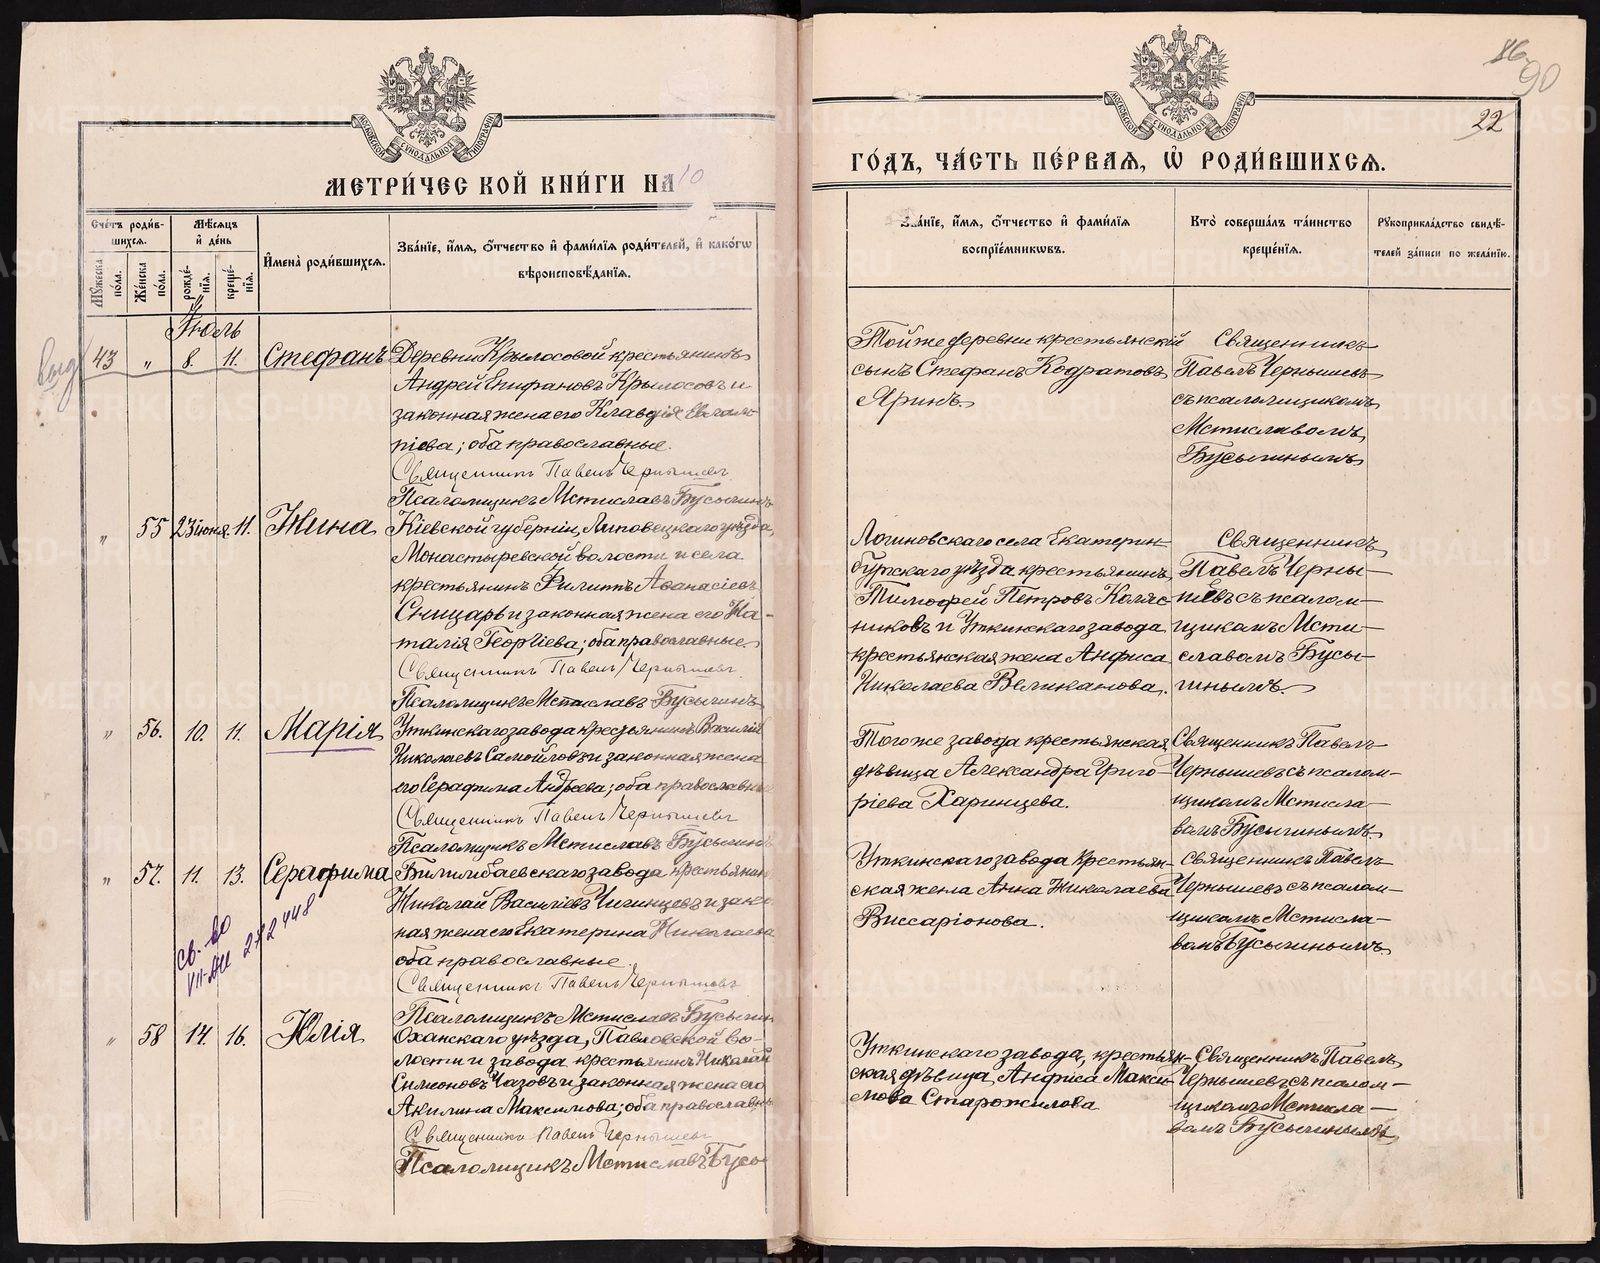 86
90
22
МОСКОВСКОЙ СУНОДАЛЬНОЙ ТИПОГРАФІИ
МОСКОВСКОЙ СУНОДАЛЬНОЙ ТИПОГРАФІИ
МЕТРИ́ЧЕСКОЙ КНИ́ГИ НА 10
ГО́ДЪ, ЧА́СТЬ ПЕ́РВАѦ, Ѽ РОДИ́ВШИХСѦ.
Сче́тъ роди́в-
шихсѧ.
Мѣ́сѧцъ
и҆ де́нь
Мꙋ́жеска по́ла.
Же́нска по́ла.
рожде́-
нїѧ.
креще́-
нїѧ.
И҆мена̀ роди́вшихсѧ.
Зва́нїе, и҆́мѧ, ѻ҆́тчество и҆ фами́лїѧ роди́телей, и҆ како́гѡ
вѣроисповѣ́данїѧ.
Зва́нїе, и҆́мѧ, ѻ҆́тчество и҆ фами́лїѧ
воспрїе́мникѡвъ.
Кто̀ соверша́лъ та́инство
креще́нїѧ.
Рꙋкоприкла́дство свидѣ́-
телей за́писи по жела́нїю.
Іюль
43 " 8. 11. Стефанъ
Деревни Крыласовой крестьянинъ
Андрей Епифановъ Крыласовъ и
законная жена его Клавдія Евгам-
піева; оба православные.
Священникъ Павелъ Чернышевъ
Псаломщикъ Мстиславъ Бусыгинъ
Той же деревни крестьянскій
сынъ Стефанъ Кодратовъ
Яринъ.
Священникъ
Павелъ Чернышевъ
съ псаломщикомъ
Мстиславомъ
Бусыгинымъ
" 55 23 іюня. 11. Нина
Кіевской губерніи, Липовецкаго уѣзда,
Монастыревской волости и села
крестьянинъ Филиппъ Аѳанасіевъ
Снищаръ и законная жена его На-
талія Георгіева; оба православные.
Священникъ Павелъ Чернышевъ
Псаломщикъ Мстиславъ Бусыгинъ
Логиновскаго села Екатерин-
бургскаго уѣзда крестьянинъ
Тимофей Петровъ Коляс-
никовъ и Уткинскаго завода
крестьянская жена Анфиса
Николаева Великанова.
Священникъ
Павелъ Черны-
шевъ съ псалом-
щикомъ Мсти-
славомъ Бусы-
гинымъ.
" 56. 10. 11. Марія
Уткинскаго завода крестьянинъ Василій
Николаевъ Самойловъ и законная жена
его Серафима Андреева; оба православные
Священникъ Павелъ Чернышевъ
Псаломщикъ Мстиславъ Бусыгинъ
Того же завода крестьянская
дѣвица Александра Григо-
ріева Харинцева.
Священникъ Павелъ
Чернышевъ съ псалом-
щикомъ Мстисла-
вомъ Бусыгинымъ
" 57. 11. 13. Серафима
Билимбаевскаго завода крестьянинъ
Николай Василіевъ Чигинцевъ и закон
ная жена его Екатерина Николаева
оба православные.
Священникъ Павелъ Чернышевъ
Псаломщикъ Мстиславъ Бусыгин
Уткинскаго завода крестьян-
ская жена Анна Николаева
Виссаріонова.
Священникъ Павелъ
Чернышевъ съ псалом-
щикомъ Мстисла-
вомъ Бусыгинымъ.
св-во
272448
" 58 14. 16. Юлія
Оханскаго уѣзда, Павловской во-
лости и завода крестьянинъ Николай
Симоновъ Чазовъ и законная жена его
Акилина Максимова; оба православны
Священникъ Павелъ Чернышевъ
Псаломщикъ Мстиславъ Бусы
Уткинскаго завода, крестьян-
ская дѣвица, Анфиса Макси-
мова Старожилова
Священникъ Павелъ
Чернышевъ съ псалом-
щикомъ Мстисла-
вомъ Бусыгинымъ
METRIKI.GASO-URAL.RU